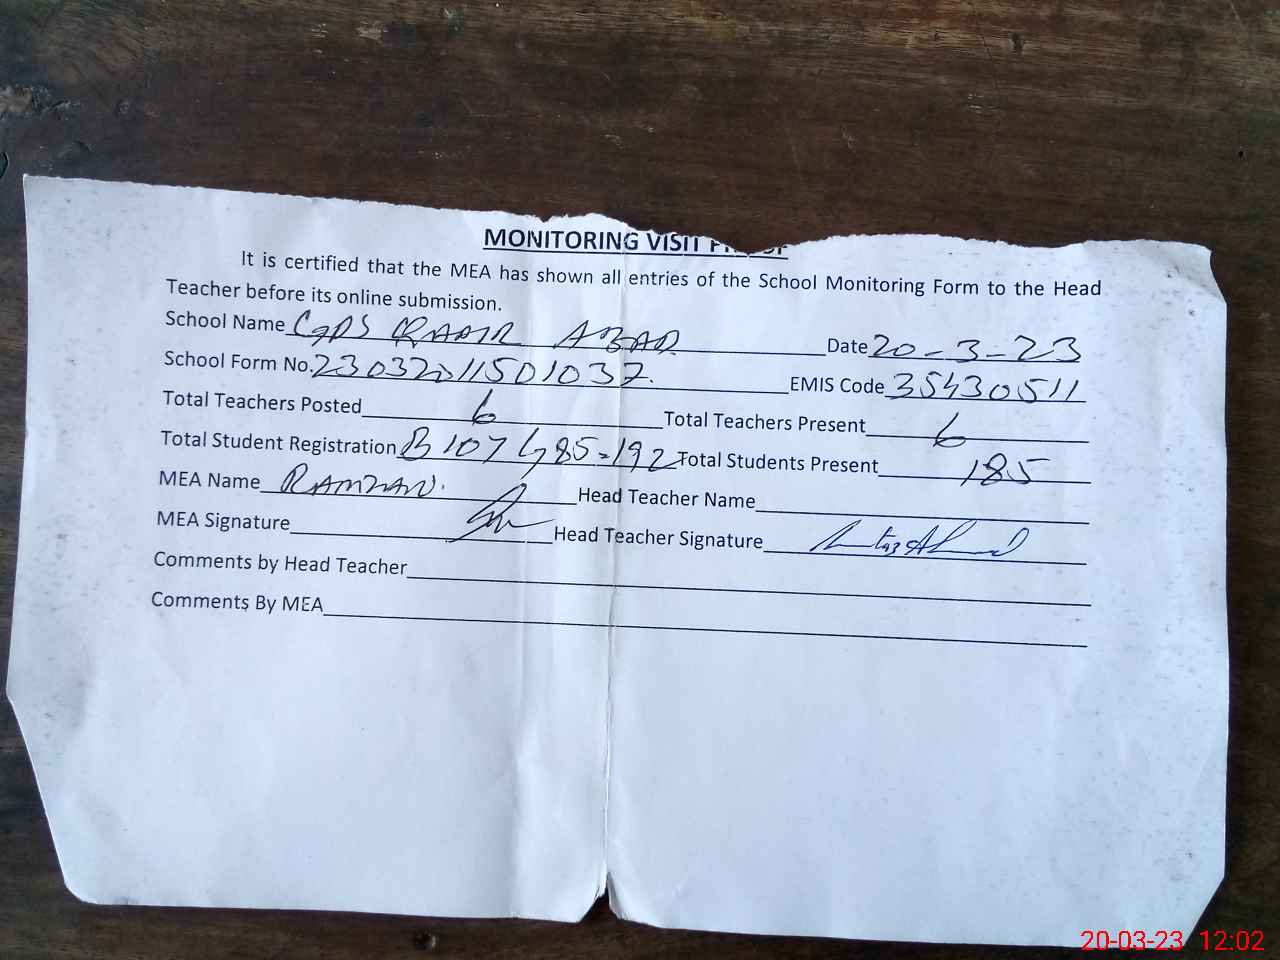 MONITORING VISIT PROOF
It is certified that the MEA has shown all entries of the School Monitoring Form to the Head
Teacher before its online submission.
School Name GPS ABAD Date 20-3-23
School Form No. 23032011501037. EMIS Code 35430511
Total Teachers Posted 6 Total Teachers Present 6
Total Student Registration B 107 G 85=192 Total Students Present 185
MEA Name RAMZAN. Head Teacher Name
MEA Signature Head Teacher Signature
Comments by Head Teacher
Comments By MEA
20-03-23 12:02